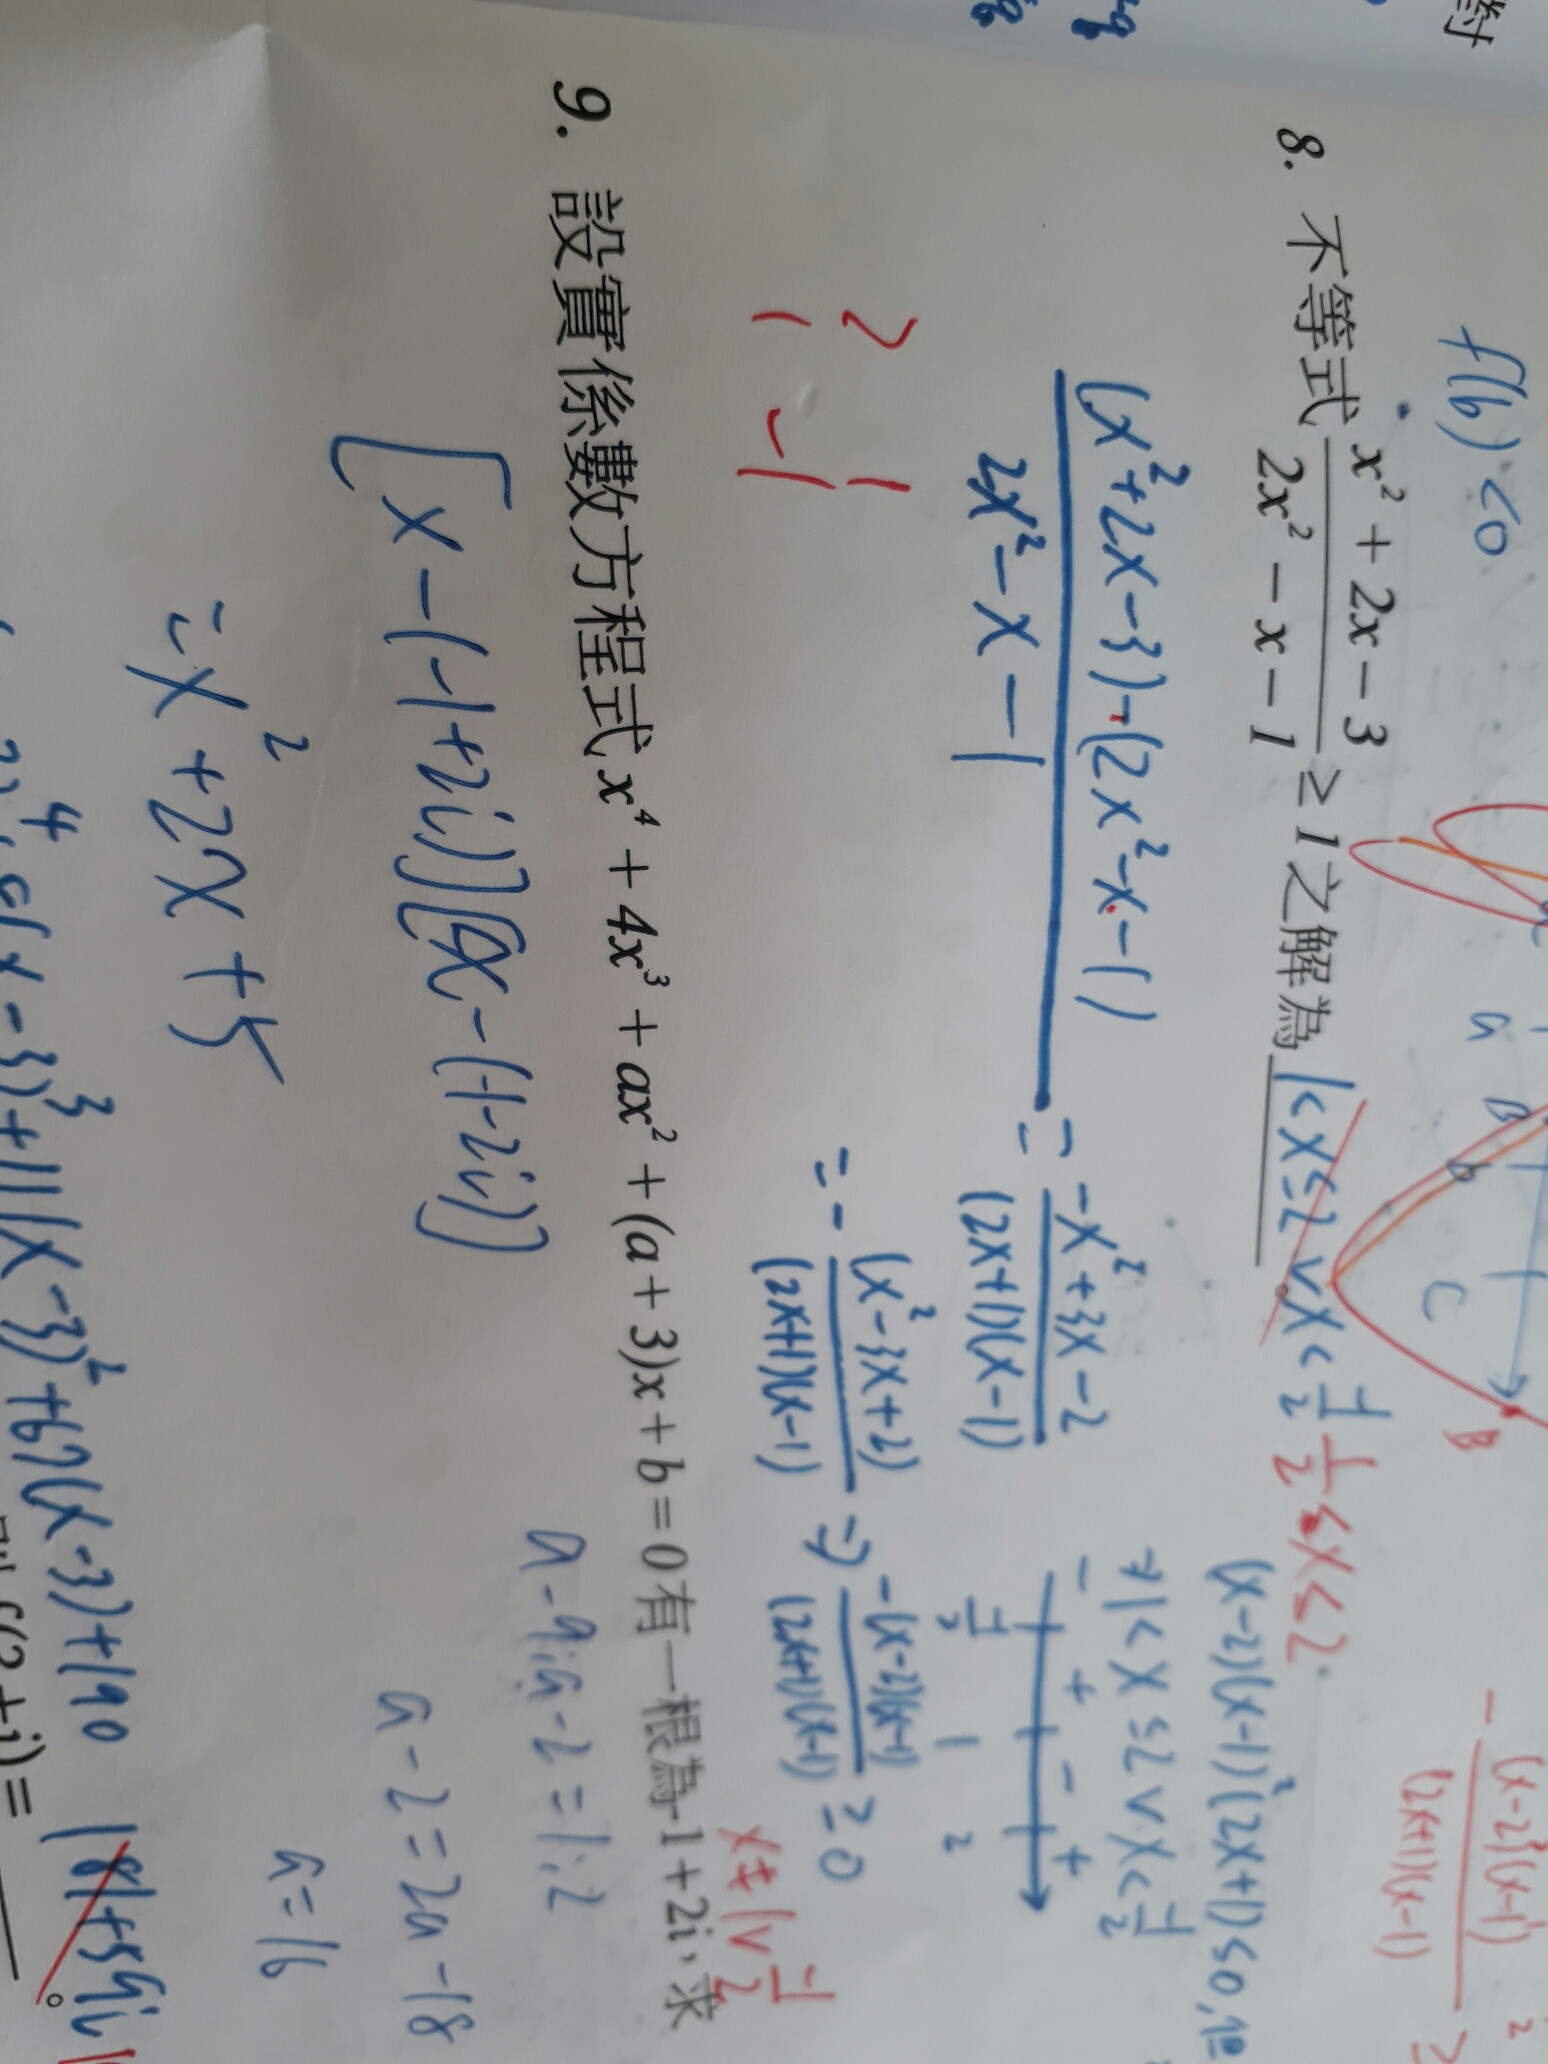 對
f(b)<0
a B b C B
8. 不等式 \frac{x^2+2x-3}{2x^2-x-1} ≥ 1 之解為 1<x≤2 ∨ x<\frac{-1}{2} \frac{-1}{2}<x≤2.
-\frac{(x-2)(x-1)}{(2x+1)(x-1)} ≥
(x-2)(x-1)^2(2x+1)≤0, 但
\frac{(x^2+2x-3)-(2x^2-x-1)}{2x^2-x-1} = \frac{-x^2+3x-2}{(2x+1)(x-1)}
→1<x≤2 ∨ x<\frac{-1}{2}
- + - +
\frac{-1}{2} 1 2
= -\frac{(x^2-3x+2)}{(2x+1)(x-1)} ⇒ \frac{-(x-2)(x-1)}{(2x+1)(x-1)} ≥0
2 1
1 -1
x≠1∨\frac{-1}{2}
9. 設實係數方程式 x^4+4x^3+ax^2+(a+3)x+b=0有一根為-1+2i，求
[x-(-1+2i)][x-(-1-2i)]
a-9:a-2=1:2
a-2=2a-18
=x^2+2x+5
a=16
+11(x-3)^2+67(x-3)+190 181+59i
=______。